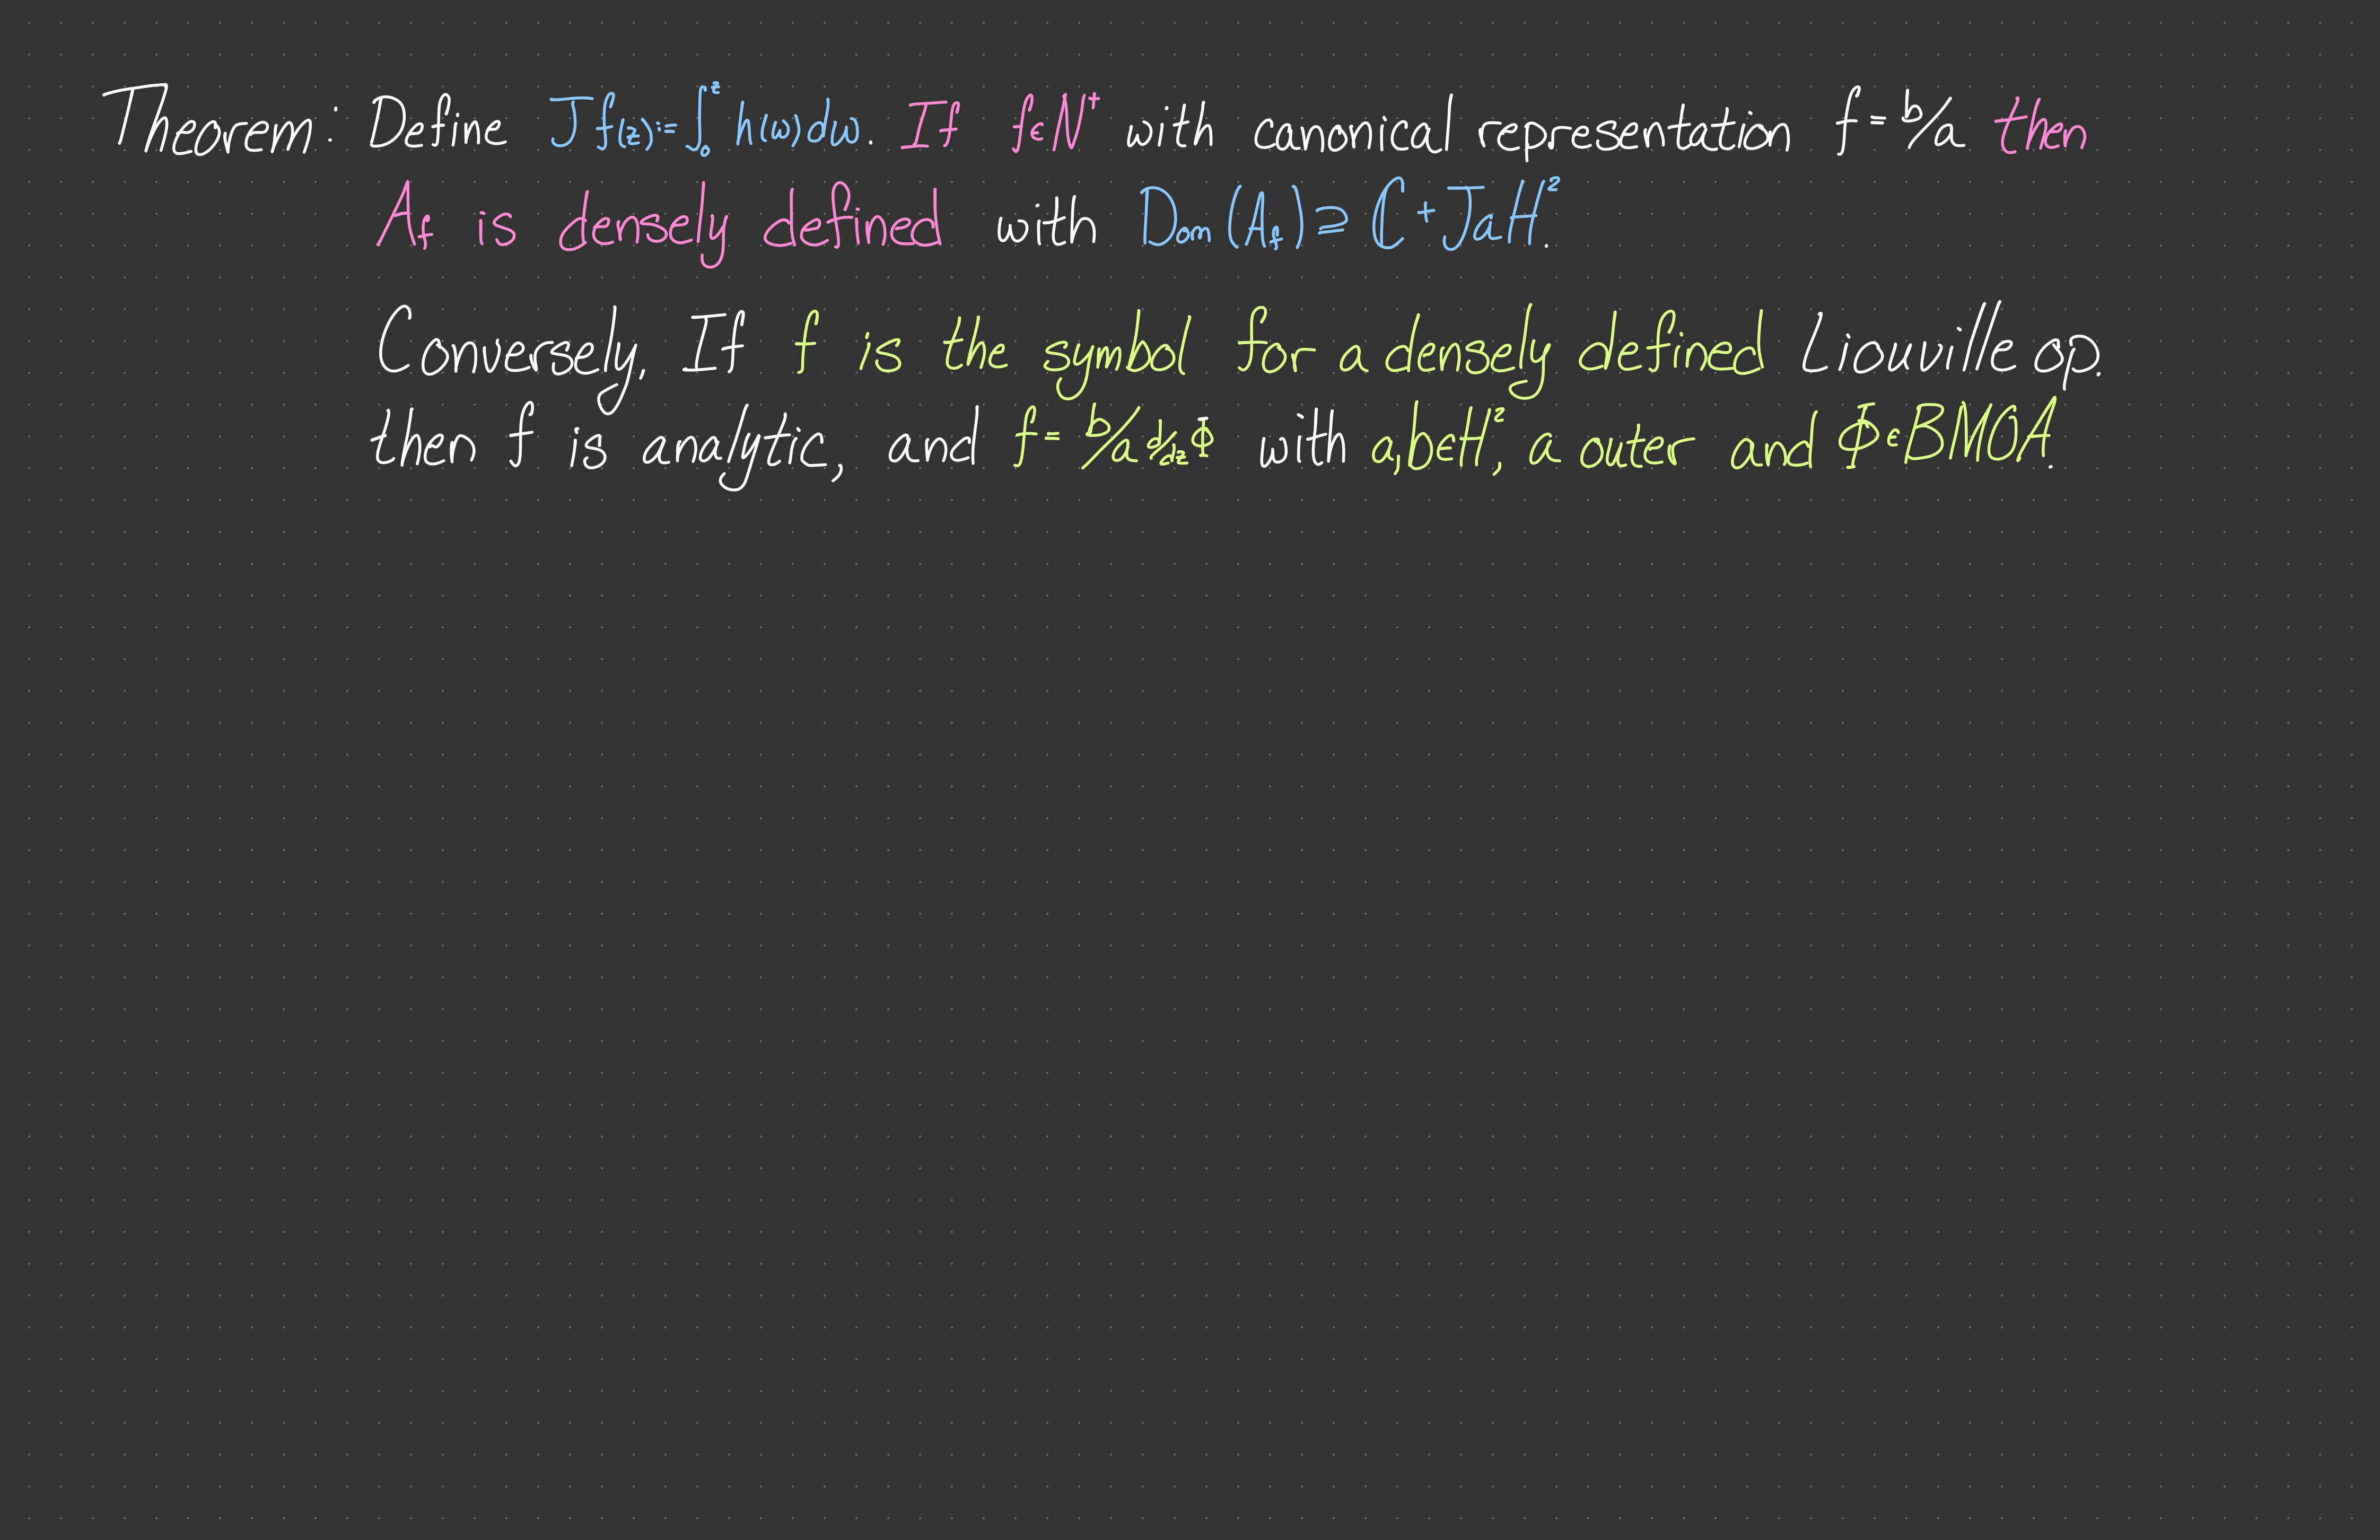 Theorem: Define Jf(z):=∫₀ᶻ h(w)dw. If f∈N⁺ with canonical representation f=b/a then
A_f is densely defined with Dom(A_f)⊇ℂ+JaH².
Conversely, If f is the symbol for a densely defined Liouville op.
then f is analytic, and f=b/a d/dz Φ with a,b∈H², a outer and Φ∈BMOA.